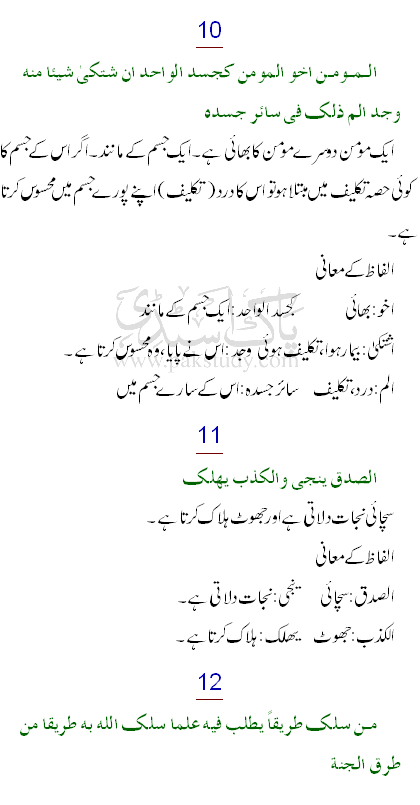 10
المومن اخو المومن کجسد الواحد ان شتکیٰ شیئا منه
وجد الم ذلک فی سائر جسده
ایک مؤمن دوسرے مؤمن کا بھائی ہے۔ ایک جسم کے مانند۔ اگر اس کے جسم کا
کوئی حصہ تکلیف میں مبتلا ہو تو اس کا درد (تکلیف) اپنے پورے جسم میں محسوس کرتا
ہے۔
الفاظ کے معانی
اخو: بھائی کجسد الواحد: ایک جسم کے مانند
اشتکیٰ: بیمار ہوا، تکلیف ہوئی وجد: اس نے پایا، وہ محسوس کرتا ہے۔
الم: درد، تکلیف سائر جسدہ: اس کے سارے جسم میں
پاک سٹڈی
www.pakstudy.com
11
الصدق ینجی والکذب یهلک
سچائی نجات دلاتی ہے اور جھوٹ ہلاک کرتا ہے۔
الفاظ کے معانی
الصدق: سچائی ینجی: نجات دلاتی ہے۔
الکذب: جھوٹ یھلک: ہلاک کرتا ہے۔
12
من سلک طریقاً یطلب فیه علما سلک الله به طریقا من
طرق الجنة